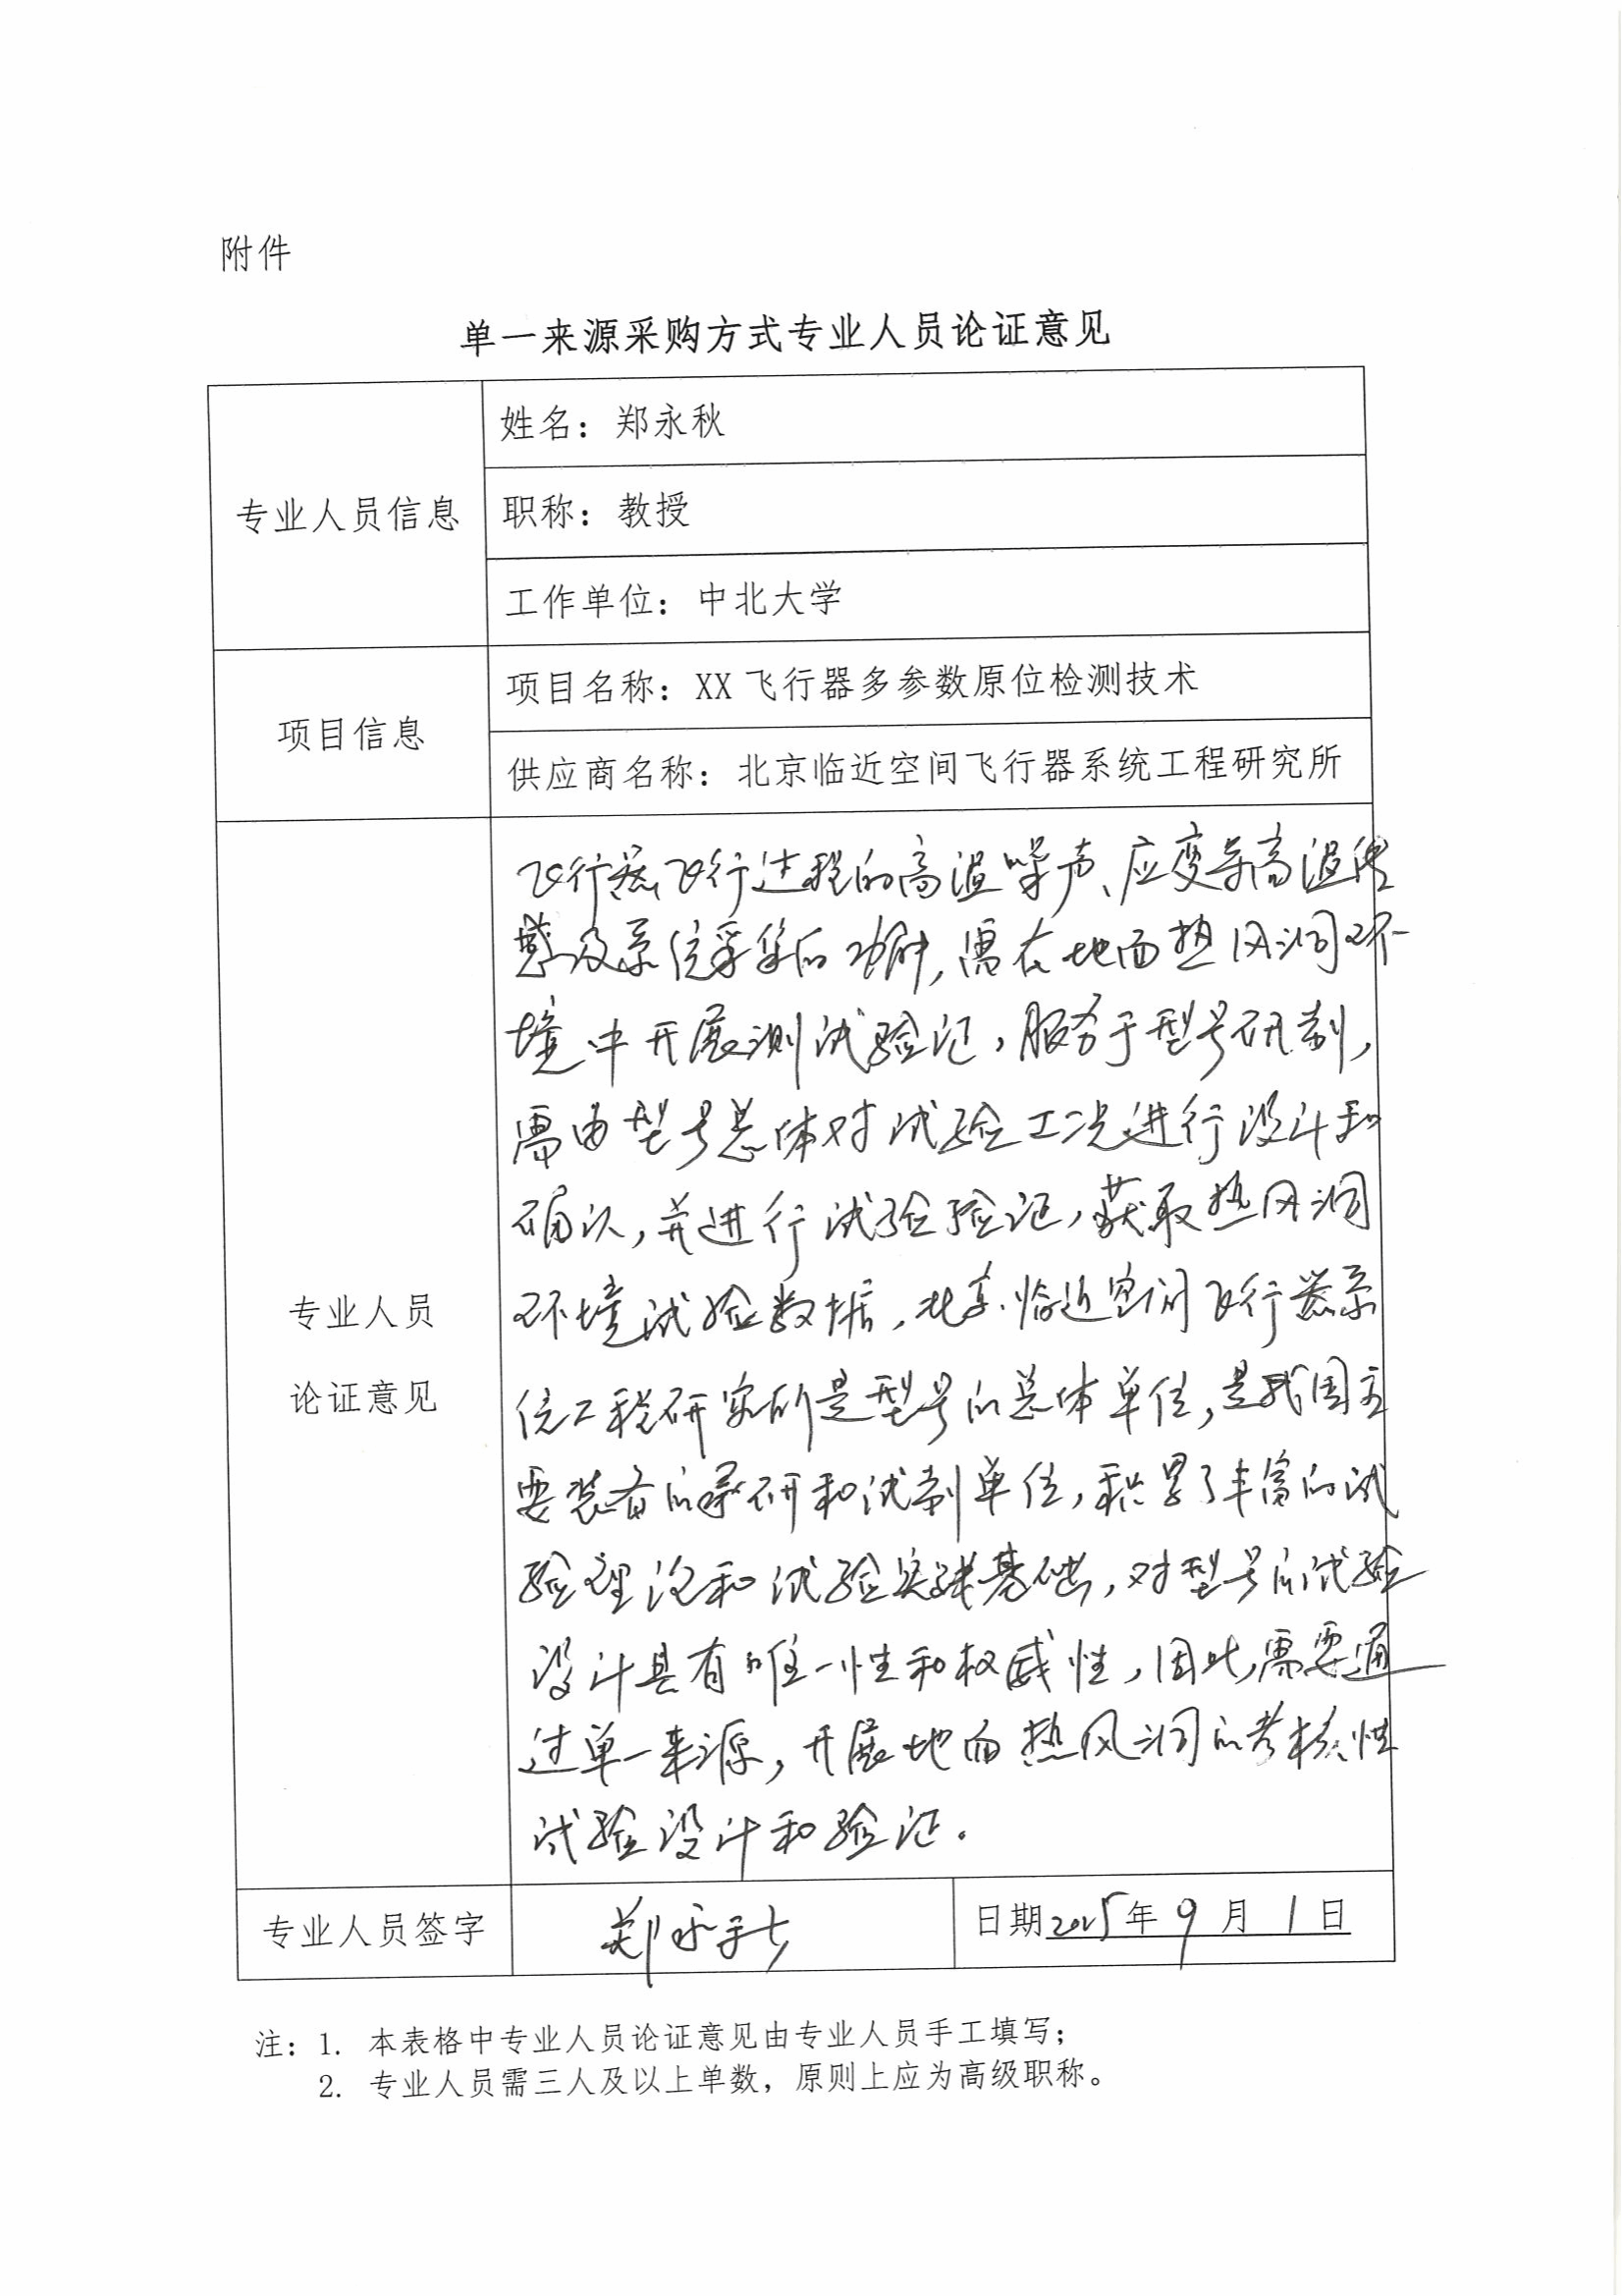 附件
单一来源采购方式专业人员论证意见
专业人员信息
姓名：郑永秋
职称：教授
工作单位：中北大学
项目信息
项目名称：XX飞行器多参数原位检测技术
供应商名称：北京临近空间飞行器系统工程研究所
专业人员
论证意见
飞行器飞行过程的高温噪声、应变等高温传
感及系统采集的功能，需在地面热风洞环
境中开展测试验证，服务于型号研制，
需由型号总体对试验工况进行设计和
确认，并进行试验验证，获取热风洞
环境试验数据，北京临近空间飞行器系
统工程研究所是型号的总体单位，是我国主
要装备的承研和试制单位，积累了丰富的试
验理论和试验实践基础，对型号的试验
设计具有唯一性和权威性，因此，需要通
过单一来源，开展地面热风洞的考核性
试验设计和验证。
专业人员签字
郑永秋
日期2025年9月1日
注：1. 本表格中专业人员论证意见由专业人员手工填写；
2. 专业人员需三人及以上单数，原则上应为高级职称。